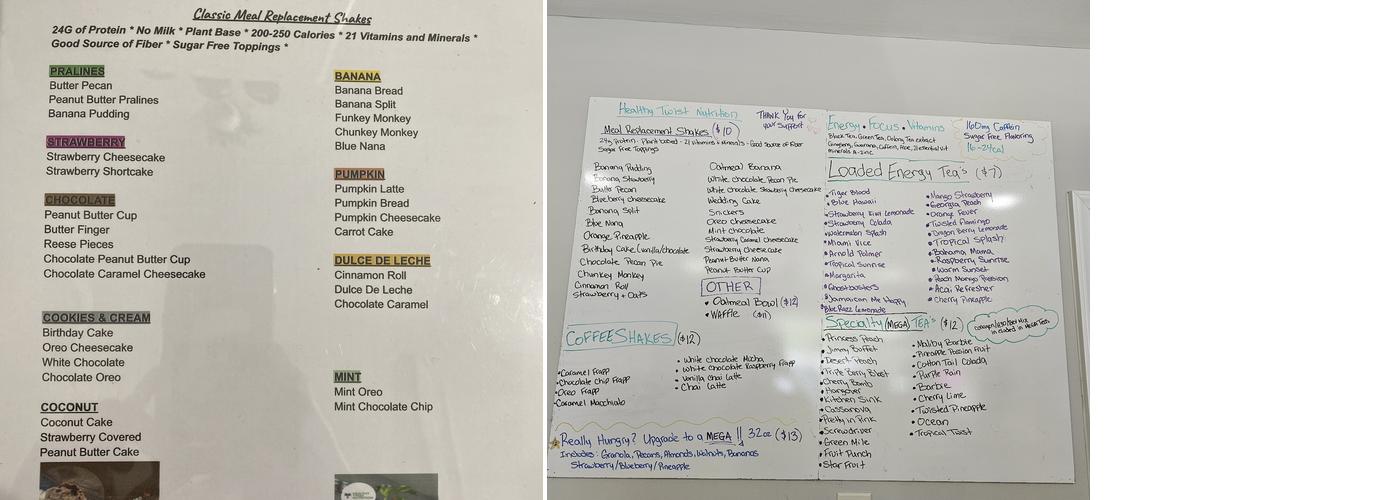 Classic Meal Replacement Shakes
24G of Protein * No Milk * Plant Base * 200-250 Calories * 21 Vitamins and Minerals *
Good Source of Fiber * Sugar Free Toppings *
PRALINES
Butter Pecan
Peanut Butter Pralines
Banana Pudding
STRAWBERRY
Strawberry Cheesecake
Strawberry Shortcake
CHOCOLATE
Peanut Butter Cup
Butter Finger
Reese Pieces
Chocolate Peanut Butter Cup
Chocolate Caramel Cheesecake
COOKIES & CREAM
Birthday Cake
Oreo Cheesecake
White Chocolate
Chocolate Oreo
COCONUT
Coconut Cake
Strawberry Covered
Peanut Butter Cake
BANANA
Banana Bread
Banana Split
Funkey Monkey
Chunkey Monkey
Blue Nana
PUMPKIN
Pumpkin Latte
Pumpkin Bread
Pumpkin Cheesecake
Carrot Cake
DULCE DE LECHE
Cinnamon Roll
Dulce De Leche
Chocolate Caramel
MINT
Mint Oreo
Mint Chocolate Chip
Healthy Twist Nutrition
THANK You for
your Support
Meal Replacement Shakes ($10)
24g Protein - Plant based - 21 vitamins & minerals - Good Source of Fiber
Sugar Free Toppings
Banana Pudding
Banana Strawberry
Butter Pecan
Blueberry cheesecake
Banana Split
Blue Nana
Orange Pineapple
Birthday Cake (vanilla/chocolate
Chocolate Pecan Pie
Chunkey Monkey
Cinnamon Roll
Strawberry + Oats
Oatmeal Banana
White chocolate Pecan Pie
White chocolate Strawberry Cheesecake
Wedding Cake
Snickers
Oreo Cheesecake
Mint chocolate
Strawberry Caramel Cheesecake
Strawberry Cheesecake
Peanut Butter Nana
Peanut Butter Cup
OTHER
• Oatmeal Bowl ($12)
• WAffle ($11)
COFFEE SHAKES ($12)
• Caramel Frapp
• Chocolate Chip Frapp
• Oreo Frapp
• Caramel Macchiato
• White chocolate Mocha
• White chocolate Raspberry Frapp
• Vanilla Chai Latte
• Chai Latte
Really Hungry? Upgrade to a MEGA !! 32oz ($13)
Includes: Granola, Pecans, Almonds, Walnuts, Bananas
Strawberry/Blueberry/Pineapple
Energy • Focus • Vitamins
Black Tea, Green Tea, Oolong Tea extract
Ginseng, Guarana, Caffein, Aloe, 21 essential vit
minerals A-zinc
160mg Caffein
Sugar Free Flavoring
16-24cal
Loaded Energy Tea's ($7)
• Tiger Blood
• Blue Hawaii
• Strawberry Kiwi Lemonade
• Strawberry Colada
• Watermelon Splash
• Miami Vice
• Arnold Palmer
• Tropical Sunrise
• Margarita
• Ghostbusters
• Jamaican Me Happy
• Blue Razz Lemonade
• Mango Strawberry
• Georgia Peach
• Orange Fever
• Twisted Flamingo
• Dragon Berry Lemonade
• Tropical Splash
• Bahama Mama
• Raspberry Sunrise
• Warm Sunset
• Peach Mango Passion
• Acai Refresher
• Cherry Pineapple
Specialty (MEGA) TEA's ($12)
included in MEGA Teas
• Princess Peach
• Jimmy Buffet
• Desert Peach
• Triple Berry Blast
• Cherry Bomb
• Hangover
• Kitchen Sink
• Cassanova
• Pretty in Pink
• Screwdriver
• Green Mile
• Fruit Punch
• Star Fruit
• Malibu Barbie
• Pineapple Passion Fruit
• Cotton Tail Colada
• Purple Rain
• Barbie
• Cherry Lime
• Twisted Pineapple
• Ocean
• Tropical Twist